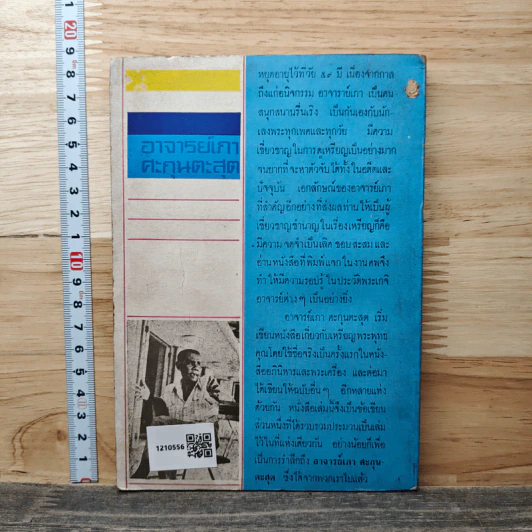 อาจารย์เภา
ศะกุนตะสุต
หยุดอายุไว้ที่วัย ๕๙ ปี เนื่องจากกาล
ถึงแก่อนิจกรรม อาจารย์เภา เป็นคน
สนุกสนานรื่นเริง เป็นกันเองกับนัก
เลงพระทุกเพศและทุกวัย มีความ
เชี่ยวชาญในการดูเหรียญเป็นอย่างมาก
จนยากที่จะหาตัวจับได้ทั้งในอดีตและ
ปัจจุบัน เอกลักษณ์ของอาจารย์เภา
ที่สำคัญอีกอย่างที่ส่งผลท่านให้เป็นผู้
เชี่ยวชาญชำนาญในเรื่องเหรียญก็คือ
มีความจดจำเป็นเลิศ ชอบสะสมและ
อ่านหนังสือที่พิมพ์แจกในงานศพจึง
ทำให้มีความรอบรู้ ในประวัติพระเกจิ
อาจารย์ต่าง ๆ เป็นอย่างยิ่ง
อาจารย์เภา ศะกุนตะสุต เริ่ม
เขียนหนังสือเกี่ยวกับเหรียญพระพุทธ
คุณโดยใช้ชื่อจริงเป็นครั้งแรกในหนัง-
สืออภินิหารและพระเครื่อง และต่อมา
ได้เขียนให้ฉบับอื่นๆ อีกหลายแห่ง
ด้วยกัน หนังสือเล่มนี้จึงเป็นข้อเขียน
ส่วนหนึ่งที่ได้รวบรวมประมวลเป็นเล่ม
ไว้ในที่แห่งเดียวกัน อย่างน้อยก็เพื่อ
เป็นการรำลึกถึง อาจารย์เภา ศะกุน-
ตะสุต ซึ่งได้จากพวกเราไปแล้ว
1210556
20
9
8
7
6
5
4
3
2
1
10
9
8
7
6
5
4
3
2
1